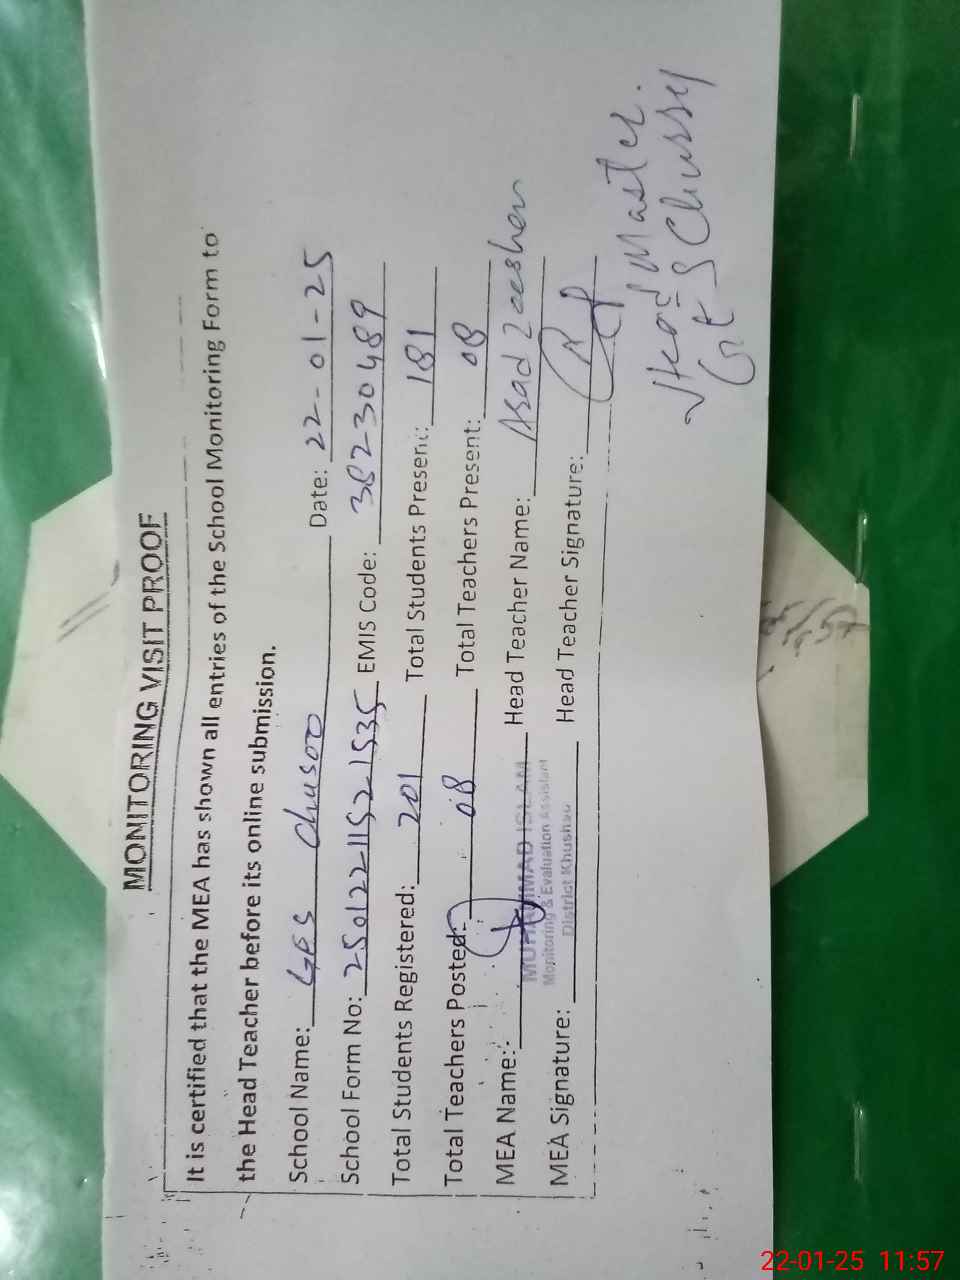 MONITORING VISIT PROOF
It is certified that the MEA has shown all entries of the School Monitoring Form to
the Head Teacher before its online submission.
School Name: GES Chusoo Date: 22-01-25
School Form No: 250122115221535 EMIS Code: 38230489
Total Students Registered: 201 Total Students Present: 181
Total Teachers Posted: 08 Total Teachers Present: 08
MEA Name: Head Teacher Name: Asad Zeeshan
MUHAMMAD ISLAM
Monitoring & Evaluation Assistant
District Khushab
MEA Signature: Head Teacher Signature:
Head Master.
G E S Chussy
22-01-25 11:57